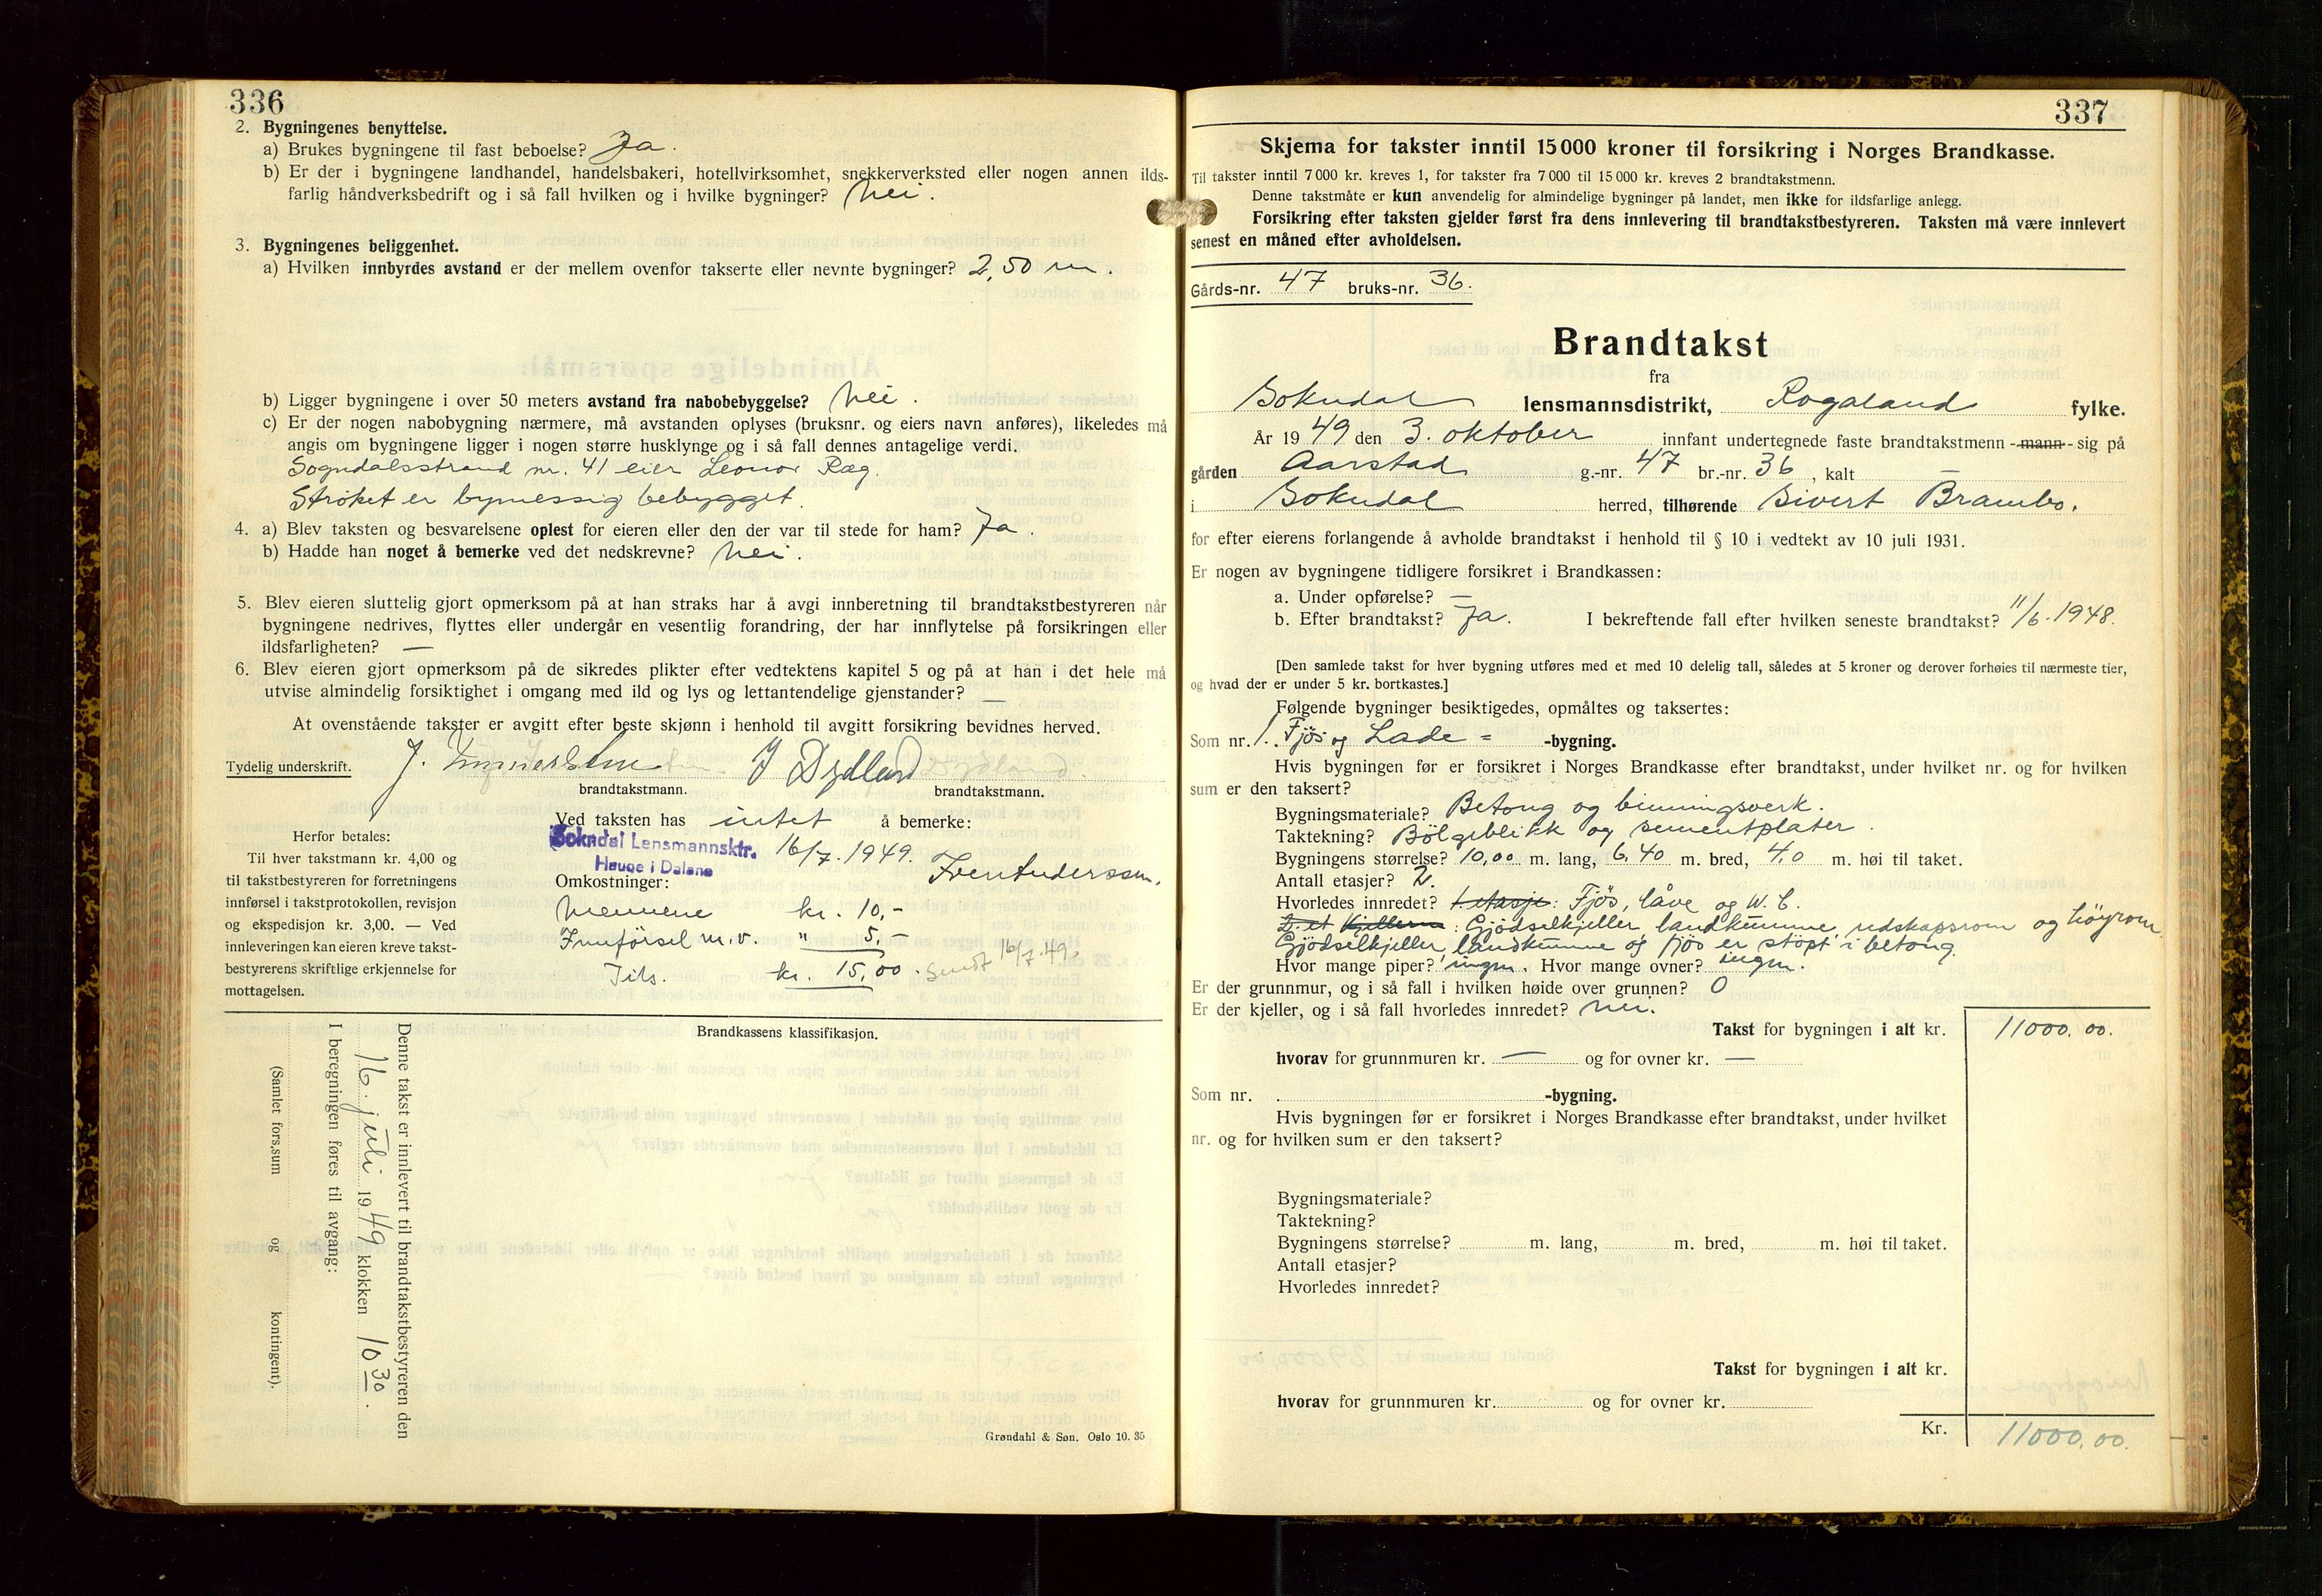 336
2. Bygningenes benyttelse.
a) Brukes bygningene til fast beboelse? Ja.
b) Er der i bygningene landhandel, handelsbakeri, hotellvirksomhet, snekkerverksted eller nogen annen ilds-
farlig håndverksbedrift og i så fall hvilken og i hvilke bygninger? Nei.
3. Bygningenes beliggenhet.
a) Hvilken innbyrdes avstand er der mellem ovenfor takserte eller nevnte bygninger? 2,50 m.
b) Ligger bygningene i over 50 meters avstand fra nabobebyggelse? Nei.
c) Er der nogen nabobygning nærmere, må avstanden oplyses (bruksnr. og eiers navn anføres), likeledes må
angis om bygningene ligger i nogen større husklynge og i så fall dennes antagelige verdi.
Sogndalsstrand nr. 41 eier Leonor Ræg.
Strøket er bymessig bebygget.
4. a) Blev taksten og besvarelsene oplest for eieren eller den der var til stede for ham? Ja.
b) Hadde han noget å bemerke ved det nedskrevne? Nei.
5. Blev eieren sluttelig gjort opmerksom på at han straks har å avgi innberetning til brandtakstbestyreren når
bygningene nedrives, flyttes eller undergår en vesentlig forandring, der har innflytelse på forsikringen eller
ildsfarligheten? —
6. Blev eieren gjort opmerksom på de sikredes plikter efter vedtektens kapitel 5 og på at han i det hele må
utvise almindelig forsiktighet i omgang med ild og lys og lettantendelige gjenstander? —
At ovenstående takster er avgitt efter beste skjønn i henhold til avgitt forsikring bevidnes herved.
Tydelig underskrift. J. J Dydland
brandtakstmann. brandtakstmann.
Ved taksten has intet å bemerke:
Sokndal Lensmannsktr. 16/7. 1949.
Hauge i Dalane
Herfor betales:
Til hver takstmann kr. 4,00 og
til takstbestyreren for forretningens
innførsel i takstprotokollen, revisjon
og ekspedisjon kr. 3,00. — Ved
innleveringen kan eieren kreve takst-
bestyrerens skriftlige erkjennelse for
mottagelsen.
Omkostninger:
Mennene kr. 10,-
Innførsel m.v. " 5,-
Tils. kr. 15,00. Sendt 16/7.49.
Brandkassens klassifikasjon.
Denne takst er innlevert til brandtakstbestyreren den
16. juli 1949 klokken 10 30.
I beregningen føres til avgang:
(Samlet fors.sum og kontingent).
Grøndahl & Søn, Oslo 10. 35
337
Skjema for takster inntil 15 000 kroner til forsikring i Norges Brandkasse.
Til takster inntil 7 000 kr. kreves 1, for takster fra 7 000 til 15 000 kr. kreves 2 brandtakstmenn.
Denne takstmåte er kun anvendelig for almindelige bygninger på landet, men ikke for ildsfarlige anlegg.
Forsikring efter taksten gjelder først fra dens innlevering til brandtakstbestyreren. Taksten må være innlevert
senest en måned efter avholdelsen.
Gårds-nr. 47 bruks-nr. 36.
Brandtakst
fra
Sokndal lensmannsdistrikt, Rogaland fylke.
År 1949 den 3. oktober innfant undertegnede faste brandtakstmenn -mann- sig på
gården Aarstad g.-nr. 47 br.-nr. 36, kalt —
i Sokndal herred, tilhørende Sivert Brambo.
for efter eierens forlangende å avholde brandtakst i henhold til § 10 i vedtekt av 10 juli 1931.
Er nogen av bygningene tidligere forsikret i Brandkassen:
a. Under opførelse? —
b. Efter brandtakst? Ja. I bekreftende fall efter hvilken seneste brandtakst? 11/6-1948.
[Den samlede takst for hver bygning utføres med et med 10 delelig tall, således at 5 kroner og derover forhøies til nærmeste tier,
og hvad der er under 5 kr. bortkastes.]
Følgende bygninger besiktigedes, opmåltes og taksertes:
Som nr. 1. Fjøs og Lade = -bygning.
Hvis bygningen før er forsikret i Norges Brandkasse efter brandtakst, under hvilket nr. og for hvilken
sum er den taksert?
Bygningsmateriale? Betong og binningsverk.
Taktekning? Bölgeblikk og sementplater.
Bygningens størrelse? 10,00 m. lang, 6,40 m. bred, 4,0 m. høi til taket.
Antall etasjer? 2.
Hvorledes innredet? 1. etasje: Fjös, låve og W.C.
kjelleren: Gjödselkjeller, landkumme, redskapsrom og höyrom.
Gjödselkjeller, landkumme og fjös er stöpt i betong.
Hvor mange piper? ingen. Hvor mange ovner? ingen.
Er der grunnmur, og i så fall i hvilken høide over grunnen? 0
Er der kjeller, og i så fall hvorledes innredet? nei.
Takst for bygningen i alt kr. 11000.00.
hvorav for grunnmuren kr. — og for ovner kr. —
Som nr. -bygning.
Hvis bygningen før er forsikret i Norges Brandkasse efter brandtakst, under hvilket
nr. og for hvilken sum er den taksert?
Bygningsmateriale?
Taktekning?
Bygningens størrelse? m. lang, m. bred, m. høi til taket.
Antall etasjer?
Hvorledes innredet?
Takst for bygningen i alt kr.
hvorav for grunnmuren kr. og for ovner kr.
Kr. 11000.00.